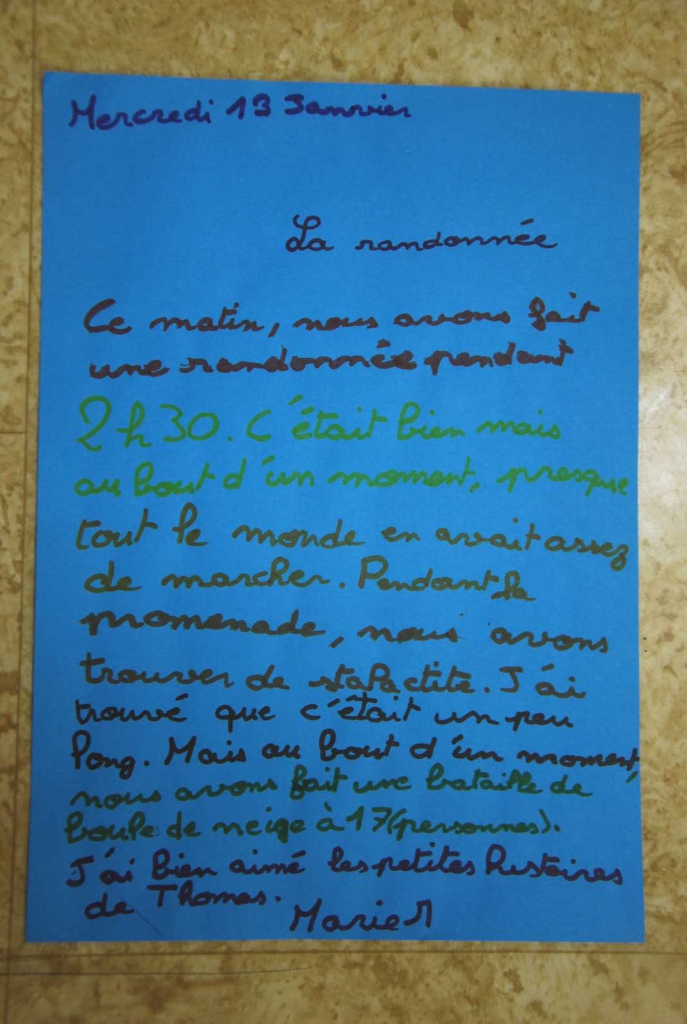 Mercredi 13 Janvier
La randonnée
Ce matin, nous avons fait
une randonnée pendant
2h30. C'était bien mais
au bout d'un moment, presque
tout le monde en avait assez
de marcher. Pendant la
promenade, nous avons
trouver de stalactite. J'ai
trouvé que c'était un peu
long. Mais au bout d'un moment,
nous avons fait une bataille de
boule de neige à 17(personnes).
J'ai bien aimé les petites histoires
de Thomas.
Marie M